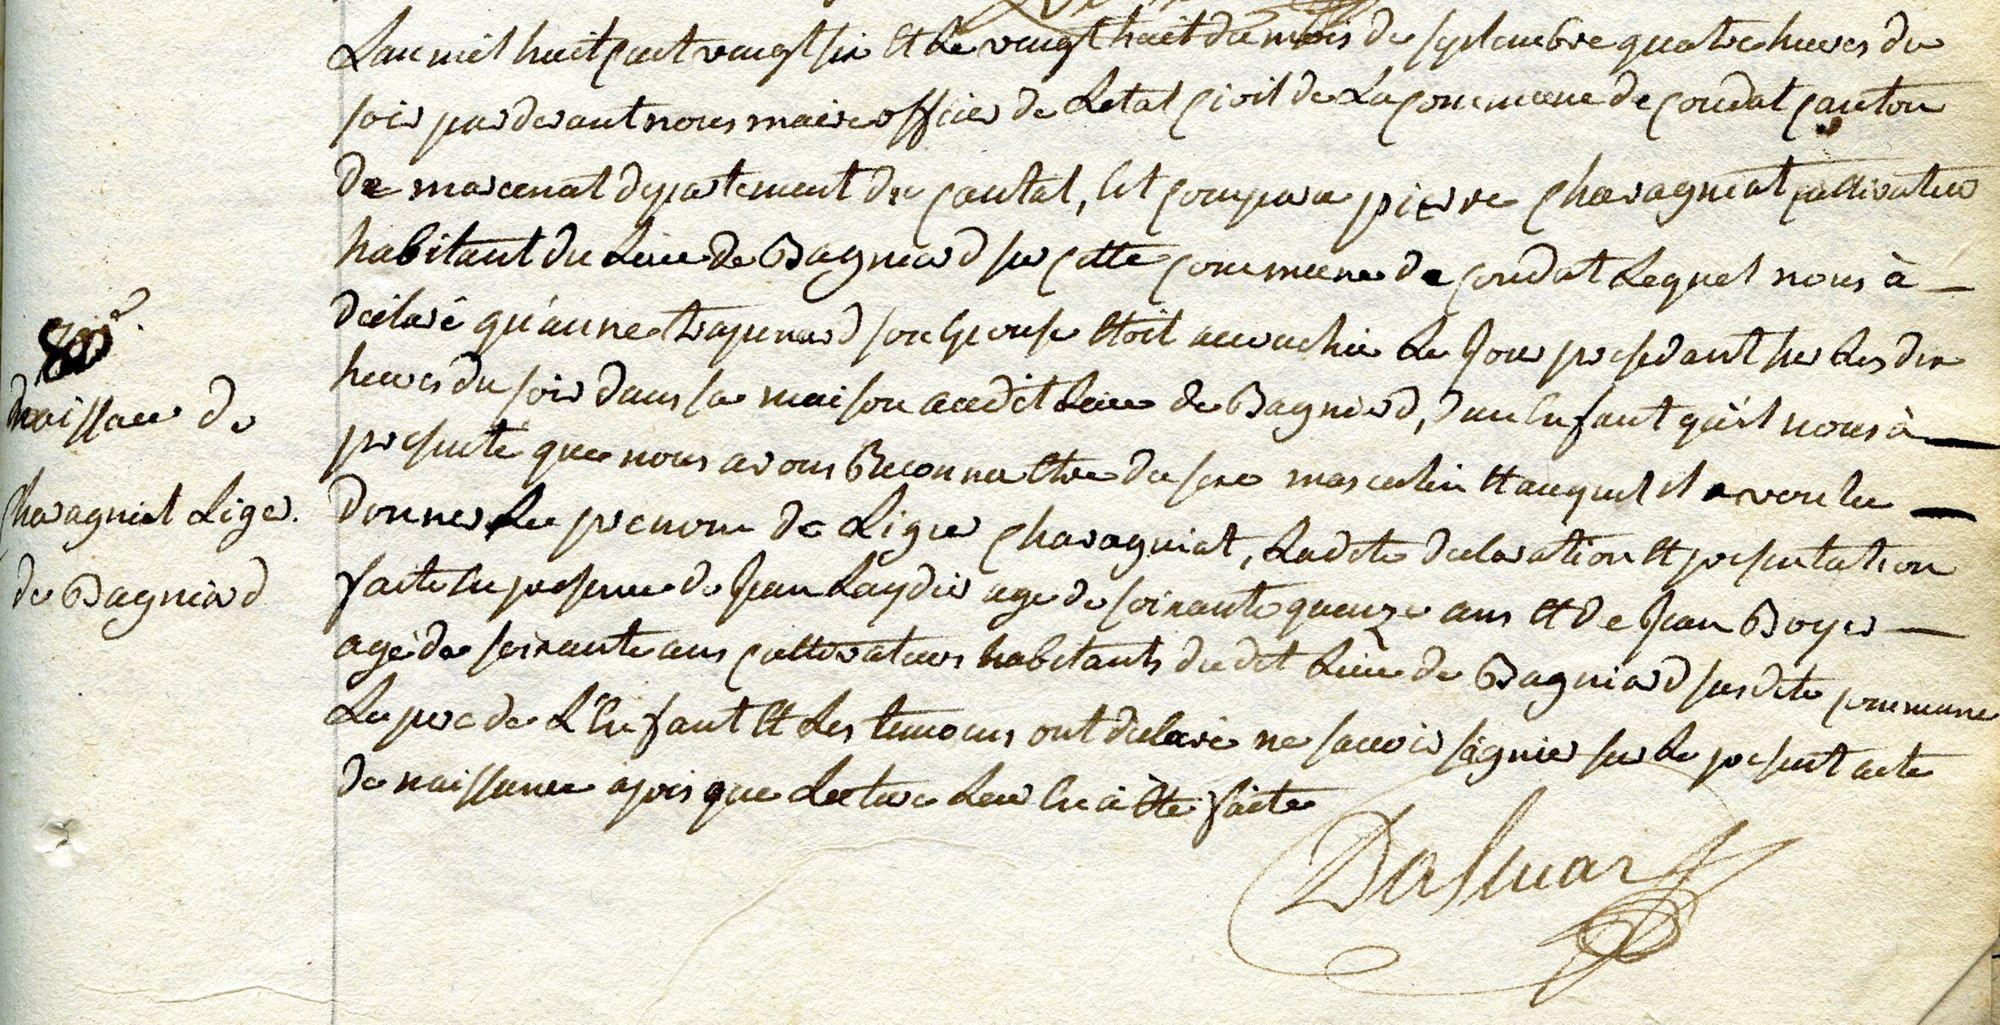 Lan mil huit cent vengt six et Le vengt huit du mois de septembre quatre heures du
soir par devant nous maire officier de Letat civil de La commune de condat canton
De marcenat departement du cantal, est comparu pierre charagniat cultivateur
habitant du Lieu de Bagniard sur cette commune de condat Lequel nous à
Déclaré qu'anne trapenard son Epouse Etoit accouchée Le Jour presedant sur Les dix
heures du soir dans sa maison audit Lieu de Bagniard, dun Enfant qu'il nous à
Naissance de
presenté que nous avons Reconnu Etre du sexe masculin Et auquel il a voulu
charagniat Liger.
Donner Le prenom de Liger charagniat, Ladite declaration Et presentation
de Bagniard
faite En presence de Jean Laydier age de soixante quenze ans Et de Jean Boyer
agé de soixante ans cultivateurs habitants du dit Lieu de Bagniard susdite commune
Le pere de L'Enfant Et Les temoins ont déclaré ne savoir signier sur Le present acte
de naissance apres que Lecture Leur En à Eté faite